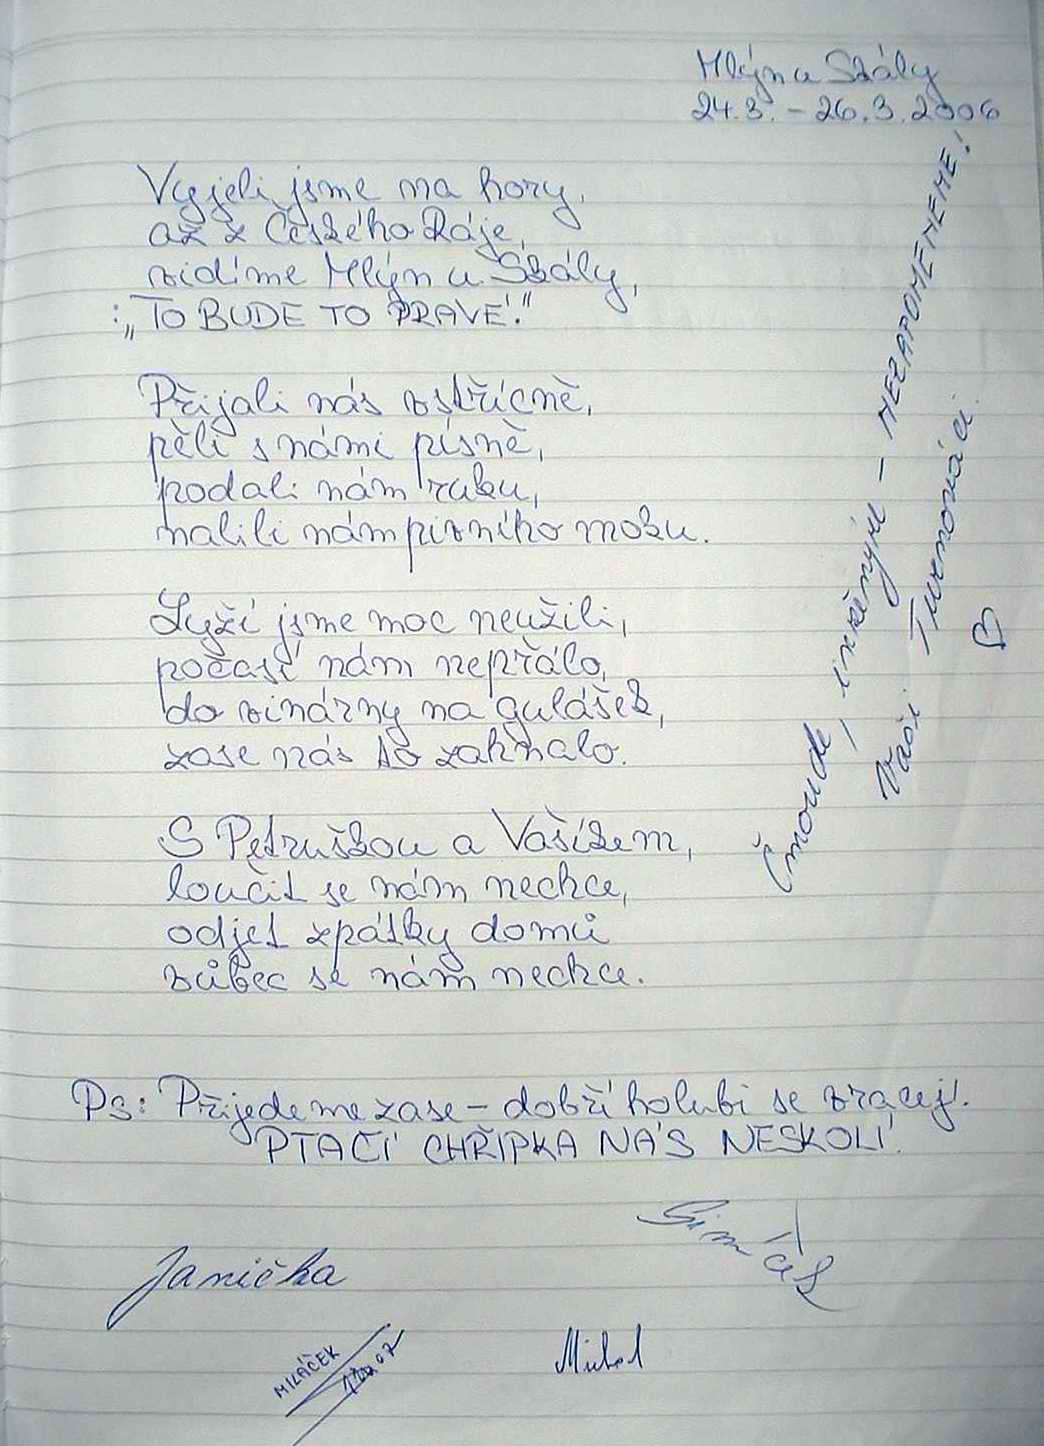 Mlýn u Skály
24.3. – 26.3.2006
Vyjeli jsme na hory,
až z Českého Ráje,
vidíme Mlýn u Skály,
: „TO BUDE TO PRAVÉ."
Přijali nás vstřícně,
pěli s námi písně,
podali nám ruku,
nalili nám pivního moku.
Lyží jsme moc neužili,
počasí nám nepřálo,
do vinárny na gulášek,
zase nás to zahnalo.
S Petruškou a Vašíkem,
loučit se nám nechce,
odjet zpátky domů
vůbec se nám nechce.
Čmoude, inženýre – NEZAPOMENEME!
Vaši Turnováci.
Ps: Přijedeme zase – dobří holubi se vracej!
PTAČÍ CHŘIPKA NÁS NESKOLÍ!
Janička
Michal
MILÁČEK